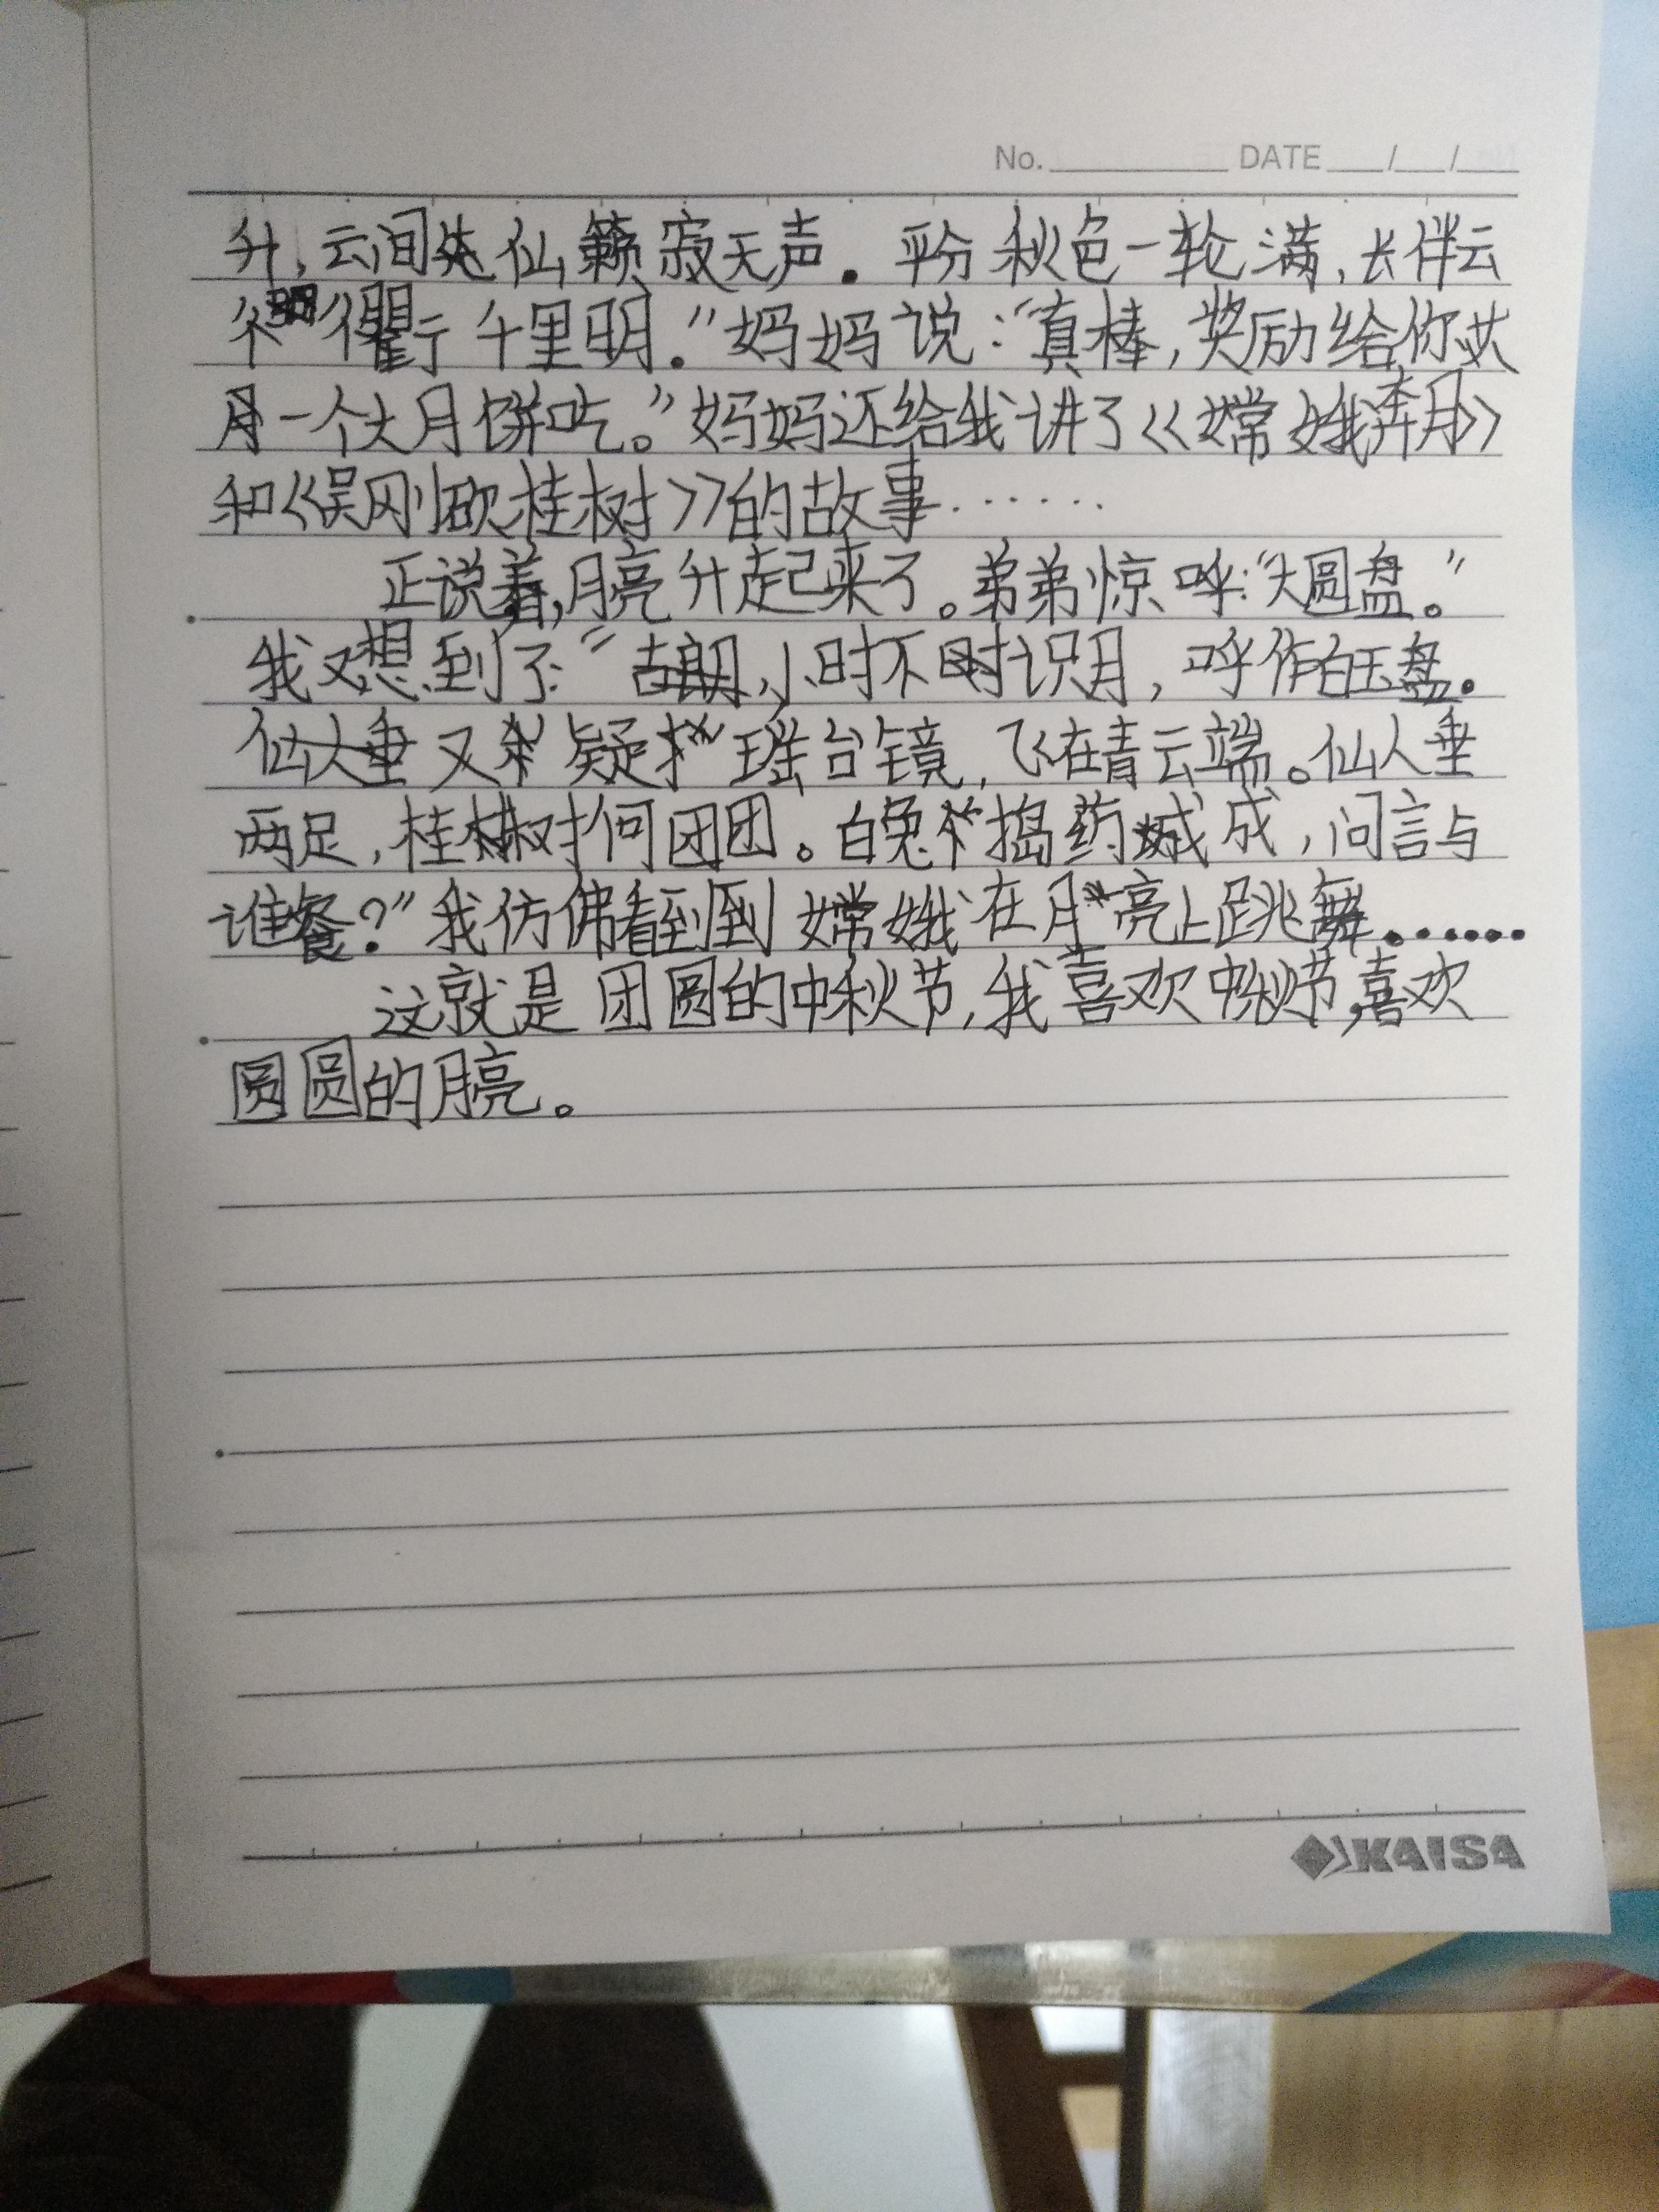 No. DATE / /
升，云间处仙籁寂无声。平分秋色一轮满，长伴云
衢千里明。”妈妈说：“真棒，奖励给你
一个大月饼吃。”妈妈还给我讲了《嫦娥奔月》
和《吴刚砍桂树》的故事……
正说着，月亮升起来了。弟弟惊呼：“大圆盘。”
我又想到了：“小时不识月，呼作白玉盘。
又疑瑶台镜，飞在青云端。仙人垂
两足，桂树何团团。白兔捣药成，问言与
谁餐？”我仿佛看到到嫦娥在月亮上跳舞……
这就是团圆的中秋节，我喜欢中秋节，喜欢
圆圆的月亮。
KAISA